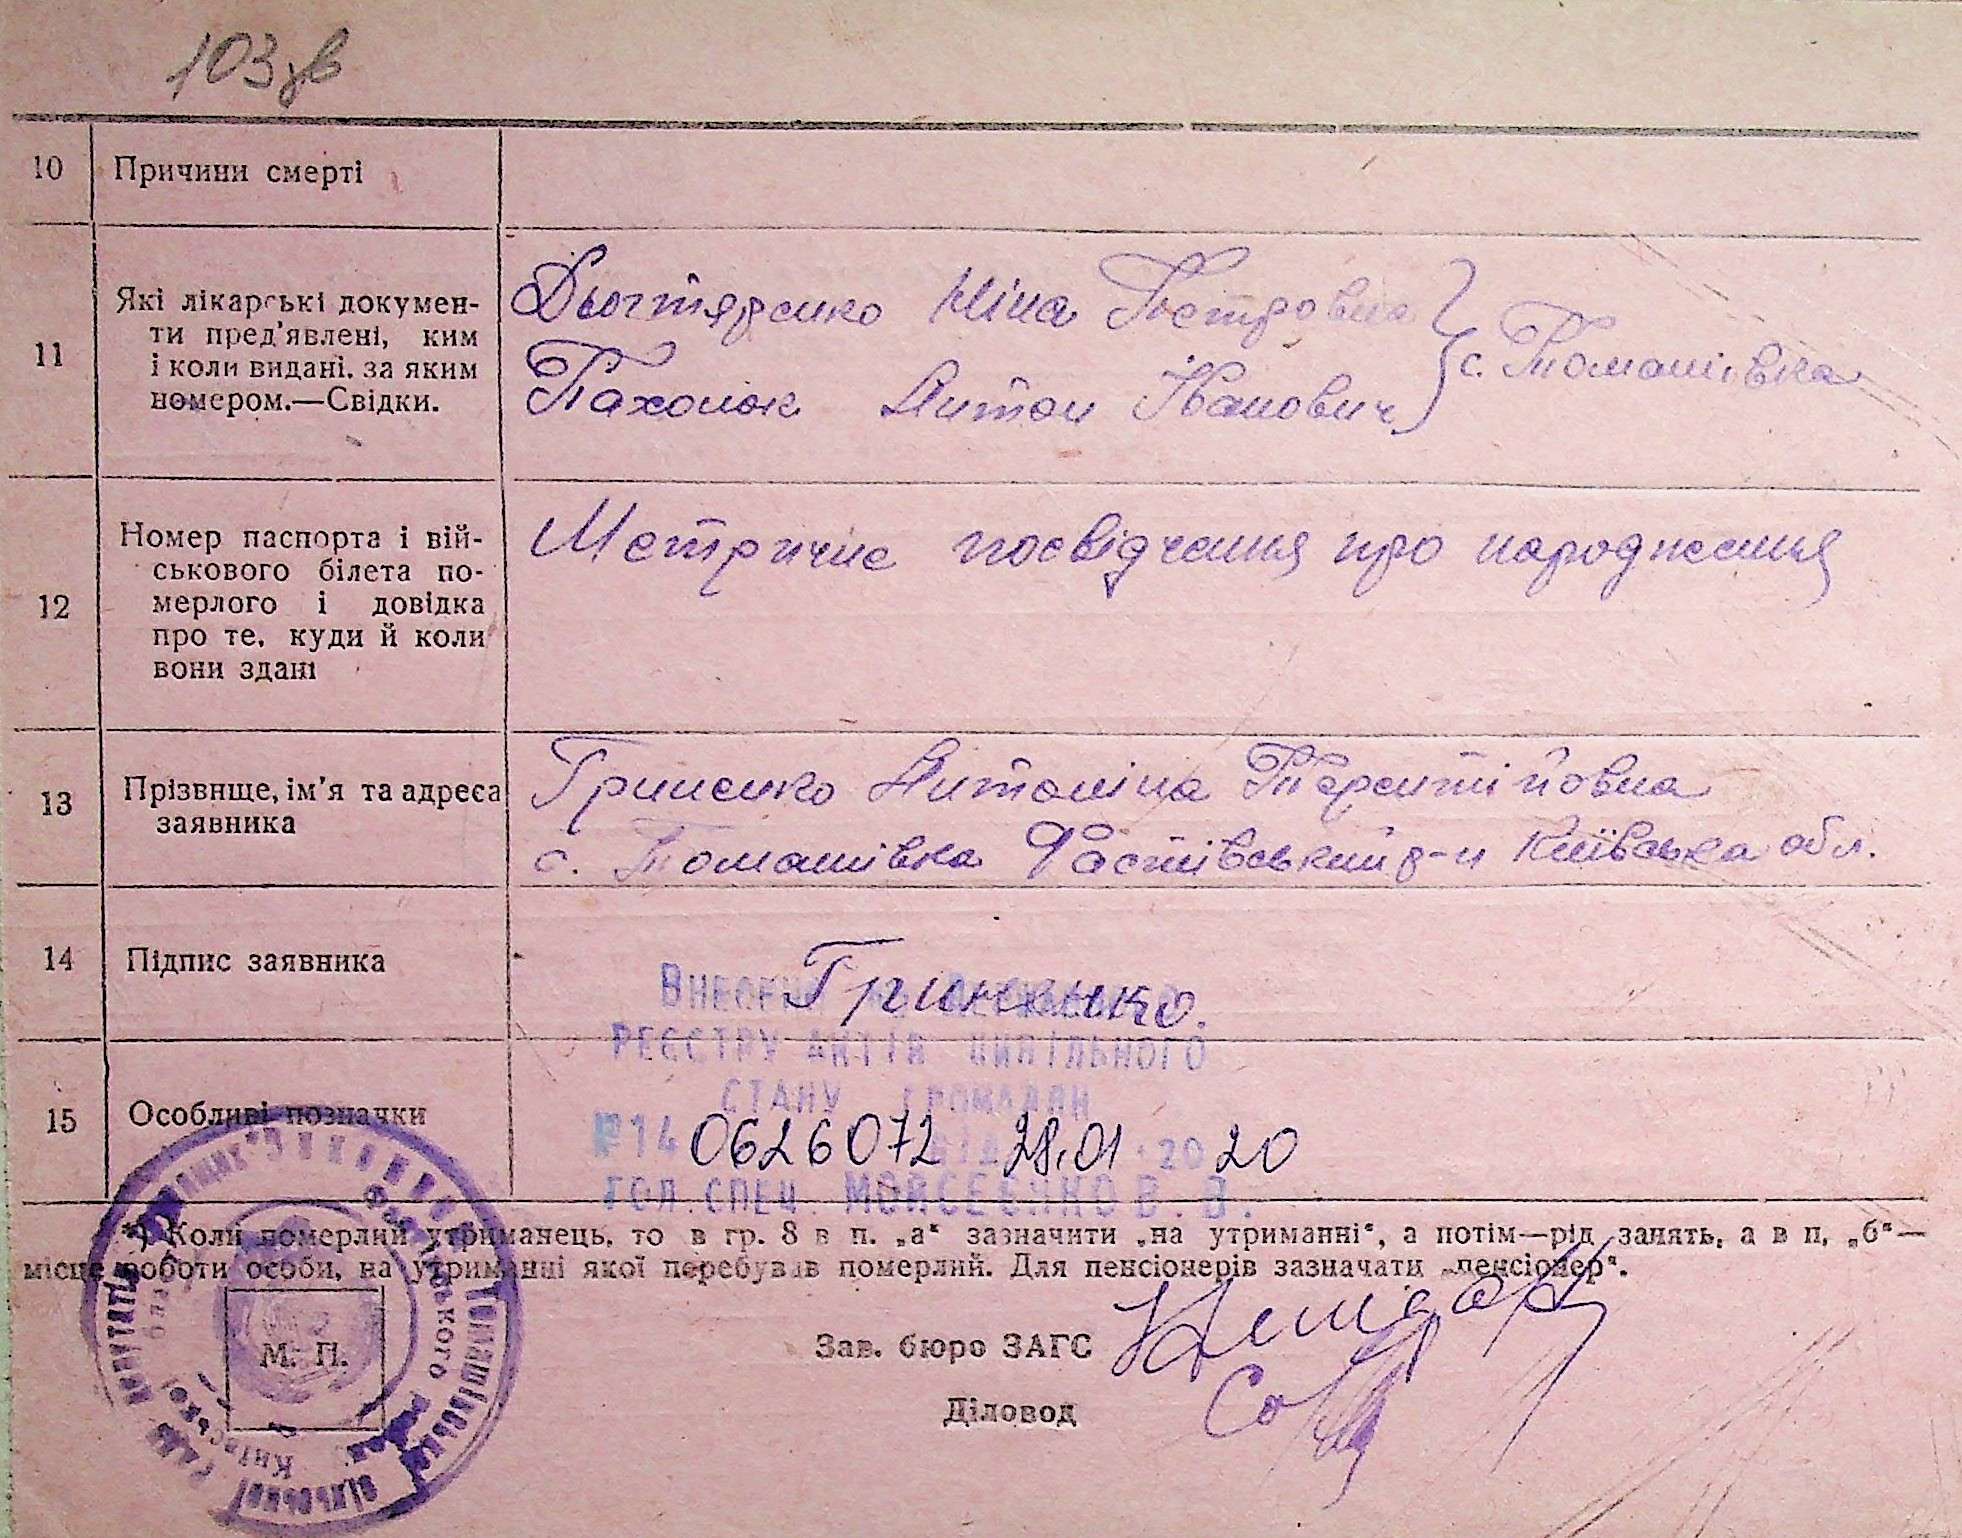 103зв
10 Причини смерті
11 Які лікарські докумен-
ти пред'явлені, ким
і коли видані. за яким
номером.—Свідки.
Дьогтяренко Ніна Петрівна
Пахолюк Антон Іванович
с. Томашівка
12 Номер паспорта і вій-
ськового білета по-
мерлого і довідка
про те, куди й коли
вони здані
Метричне посвідчення про народження
13 Прізвище, ім'я та адреса
заявника
Гриненко Антоніна Терентіївовна
с. Томашівка Фастівський р-н Київська обл.
14 Підпис заявника
Гриненко.
Внесено до Державного
реєстру актів цивільного
стану громадян
15 Особливі позначки
№14 0626072 від 28.01.2020
гол. спец. Мойсеєнко В. В.
*) Коли померлий утриманець, то в гр. 8 в п. „а“ зазначити „на утриманні“, а потім—рід занять, а в п. „б“—
місце роботи особи, на утриманні якої перебував померлий. Для пенсіонерів зазначати „пенсіонер“.
М. П.
Зав. бюро ЗАГС
Діловод